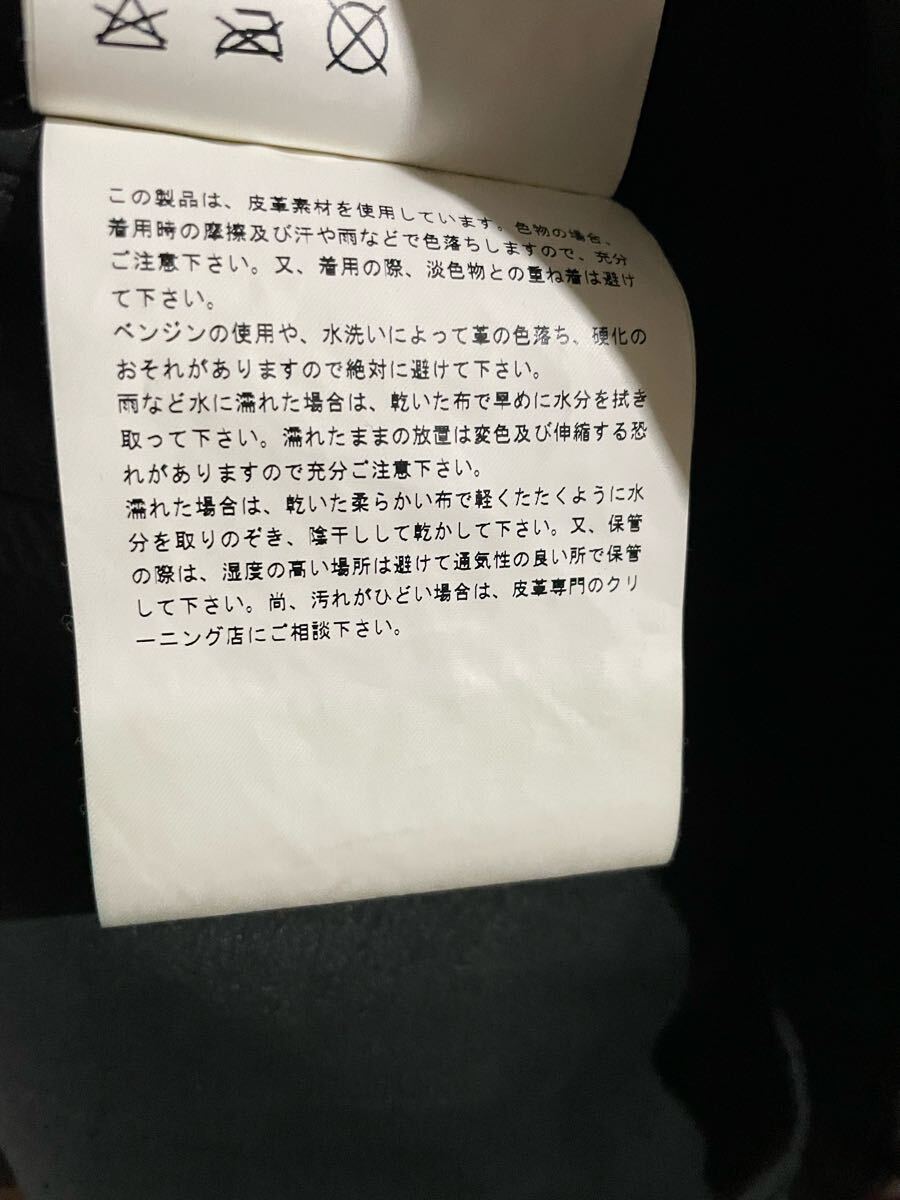 この製品は、皮革素材を使用しています。色物の場合、
着用時の摩擦及び汗や雨などで色落ちしますので、充分
ご注意下さい。又、着用の際、淡色物との重ね着は避け
て下さい。
ベンジンの使用や、水洗いによって革の色落ち、硬化の
おそれがありますので絶対に避けて下さい。
雨など水に濡れた場合は、乾いた布で早めに水分を拭き
取って下さい。濡れたままの放置は変色及び伸縮する恐
れがありますので充分ご注意下さい。
濡れた場合は、乾いた柔らかい布で軽くたたくように水
分を取りのぞき、陰干しして乾かして下さい。又、保管
の際は、湿度の高い場所は避けて通気性の良い所で保管
して下さい。尚、汚れがひどい場合は、皮革専門のクリ
ーニング店にご相談下さい。